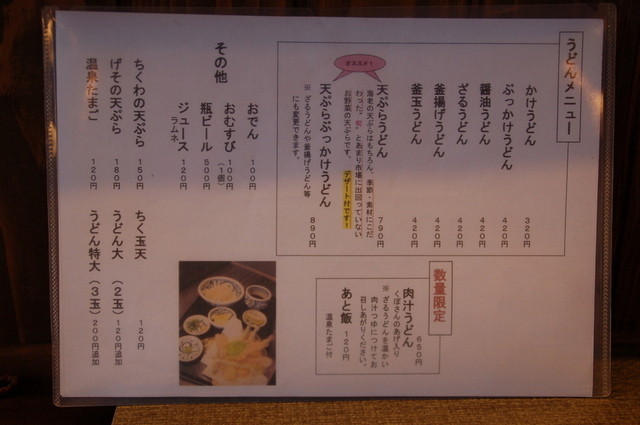 うどんメニュー
かけうどん 320円
ぶっかけうどん 420円
醤油うどん 420円
ざるうどん 420円
釜揚げうどん 420円
釜玉うどん 420円
オススメ!
天ぷらうどん 790円
海老の天ぷらはもちろん、季節・素材にこだ
わった。 とあまり市場に出回っていない
お野菜の天ぷらです。 デザート付です!
天ぷらぶっかけうどん 890円
※ざるうどんや釜揚げうどん等
にも変更できます。
数量限定
肉汁うどん 650円
くぼさんのあげ入り
※ざるうどんを温かい
肉汁つゆにつけてお
召しあがりください。
あと飯 120円
温泉たまご付
その他
おでん 100円
おむすび 100円
(1個)
瓶ビール 500円
ジュース 120円
ラムネ
ちくわの天ぷら 150円
げその天ぷら 180円
温泉たまご 120円
ちく玉天 120円
うどん大(2玉) 120円追加
うどん特大(3玉) 200円追加